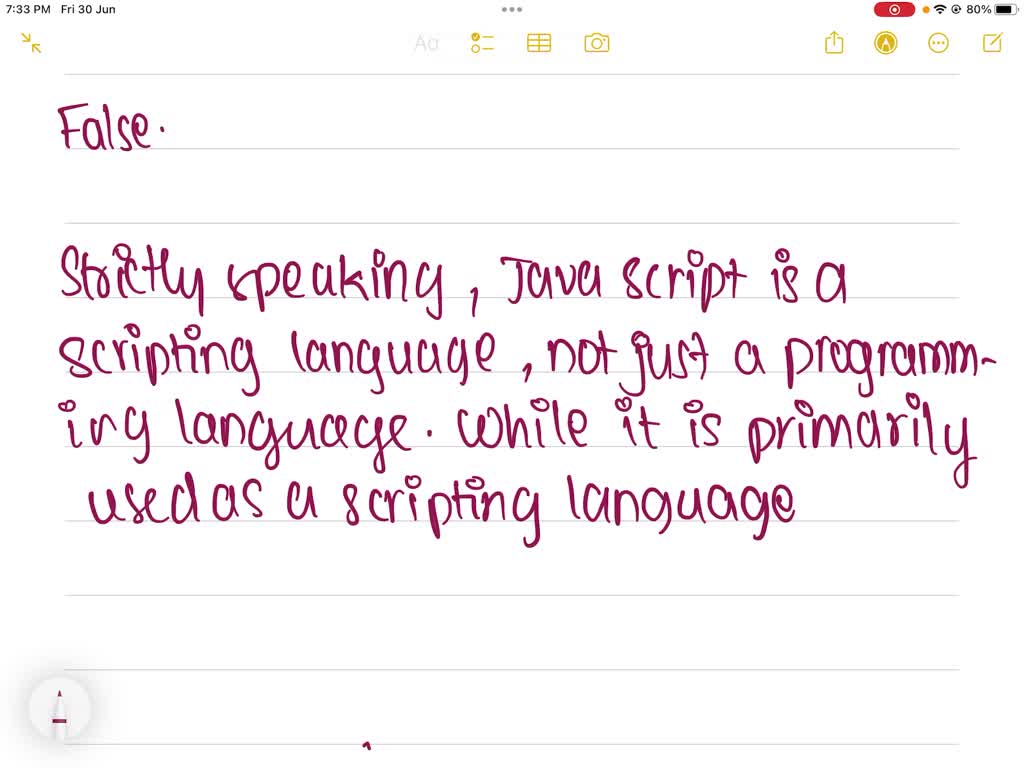 7:33 PM Fri 30 Jun
80%
Aa
False.
Strictly speaking, Java script is a
scripting language, not just a programm-
ing language. While it is primarily
used as a scripting language